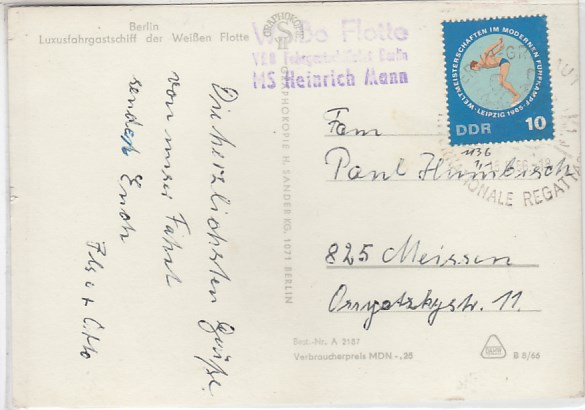 Berlin
Luxusfahrgastschiff der Weißen Flotte
GRAPHOKOPIE
GRAPHOKOPIE H. SANDER KG, 1071 BERLIN
Weiße Flotte
VEB Fahrgastschiffahrt Berlin
MS Heinrich Mann
WELTMEISTERSCHAFTEN IM MODERNEN FÜNFKAMPF
LEIPZIG 1965
DDR 10
REGATTA
Die herzlichsten Grüße
von unser Fahrt
senden Euch
Fam
Paul Humbisch
825 Meissen
Ossietzkystr. 11.
Best.-Nr. A 2187
Verbraucherpreis MDN -,25
B 8/66